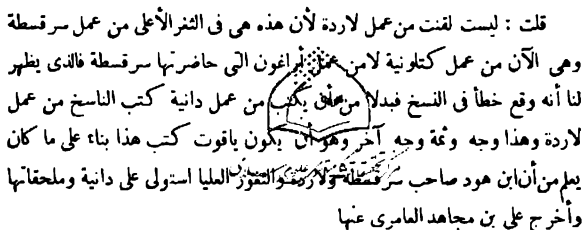 قلت : ليست لقنت من عمل لاردة لأن هذه هى فى الثغر الأعلى من عمل سرقسطة
وهى الآن من عمل كتلونية لا من عمل أراغون التى حاضرتها سرقسطة فالذى يظهر
لنا أنه وقع خطأ فى النسخ فبدلا من أن يكتب من عمل دانية كتب الناسخ من عمل
لاردة وهذا وجه وثمة وجه آخر وهو أن يكون ياقوت كتب هذا بناء على ما كان
يعلم من أن ابن هود صاحب سرقسطة ولاردة والثغور العليا استولى على دانية وملحقاتها
وأخرج على بن مجاهد العامرى عنها